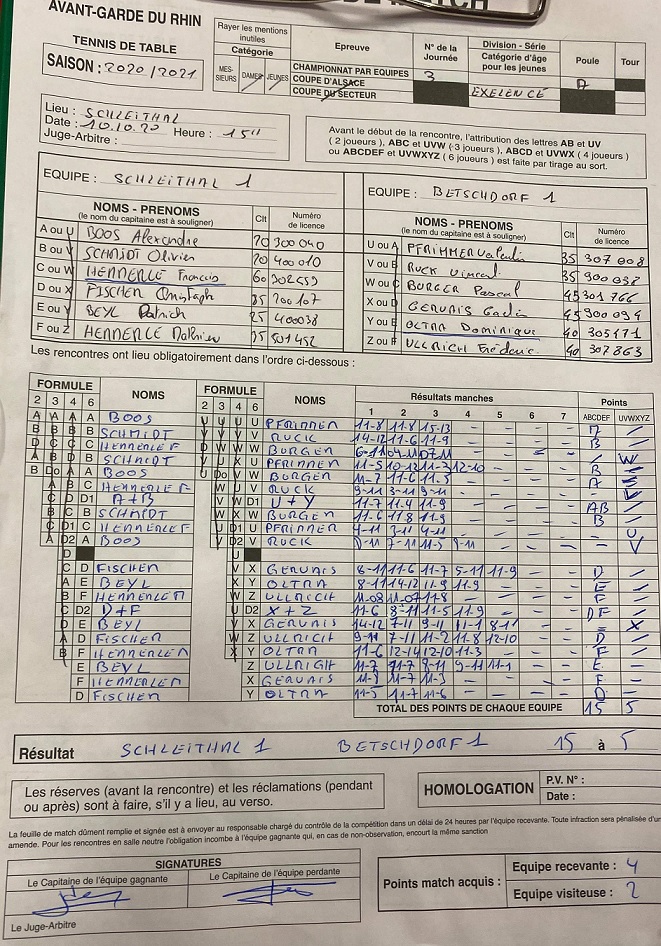 AVANT-GARDE DU RHIN
TENNIS DE TABLE
SAISON : 2020/2021
Rayer les mentions inutiles
Catégorie
MESSIEURS DAMES JEUNES
Epreuve
CHAMPIONNAT PAR EQUIPES
COUPE D'ALSACE
COUPE DU SECTEUR
N° de la Journée
3
Division - Série
Catégorie d'âge pour les jeunes
EXELENCE
Poule
A
Tour
Lieu : SCHLEITHAL
Date : 10.10.20 Heure : 15H
Juge-Arbitre :
Avant le début de la rencontre, l'attribution des lettres AB et UV
( 2 joueurs ), ABC et UVW (-3 joueurs ), ABCD et UVWX ( 4 joueurs )
ou ABCDEF et UVWXYZ ( 6 joueurs ) est faite par tirage au sort.
EQUIPE : SCHLEITHAL 1
NOMS - PRENOMS Clt Numéro de licence
(le nom du capitaine est à souligner)
A ou U BOOS Alexandre 70 300040
B ou V SCHMIDT Olivier 70 400010
C ou W HENNERLE Francis 60 302559
D ou X FISCHER Christophe 35 200107
E ou Y BEYL Patrick 25 400038
F ou Z HENNERLE Mathieu 35 501452
EQUIPE : BETSCHDORF 1
NOMS - PRENOMS Clt Numéro de licence
(le nom du capitaine est à souligner)
U ou A PFRIMMER Valentin 35 307008
V ou B RUCK Vincent 35 300038
W ou C BURGER Pascal 45 301766
X ou D GERVAIS 45 300094
Y ou E OLTRA Dominique 40 305171
Z ou F ULLRICH Fréderic 40 307863
Les rencontres ont lieu obligatoirement dans l'ordre ci-dessous :
FORMULE NOMS FORMULE NOMS Résultats manches Points
2 3 4 6 2 3 4 6 1 2 3 4 5 6 7 ABCDEF UVWXYZ
A A A A BOOS U U U U PFRIMMER 11-8 11-8 15-13 A
B B B B SCHMIDT V V V V RUCK 14-12 11-6 11-9 B
C C HENNERLE F W W BURGER W
B SCHMIDT U PFRIMMER 11-5 10-12 11-7 12-10 B
A A BOOS W BURGER 11-7 11-6 11-5 A
C HENNERLE F V RUCK 9-11 3-11 9-11 V
D1 A+B D1 U+Y 11-7 11-4 11-9 AB
B SCHMIDT W BURGER 11-6 11-8 11-9 B
C HENNERLE F U PFRIMMER 4-11 3-11 4-11 U
A BOOS V RUCK 7-11 11-5 V
D FISCHER X GERVAIS 8-11 11-6 11-7 5-11 11-9 D
E BEYL Y OLTRA 8-11 14-12 11-9 11-9 E
F HENNERLE M Z ULLRICH F
D2 D+F D2 X+Z 11-6 8-11 11-5 11-9 DF
E BEYL X GERVAIS 14-12 7-11 9-11 11-1 8-11 X
D FISCHER Z ULLRICH 9-11 7-11 11-2 11-8 12-10 D
F HENNERLE M Y OLTRA 11-6 12-14 12-10 11-3 F
E BEYL Z ULLRICH 11-7 9-11 11-1 E
F HENNERLE M X GERVAIS F
D FISCHER Y OLTRA 11-7 11-6 D
TOTAL DES POINTS DE CHAQUE EQUIPE 15 5
Résultat SCHLEITHAL 1 BETSCHDORF 1 15 à 5
Les réserves (avant la rencontre) et les réclamations (pendant
ou après) sont à faire, s'il y a lieu, au verso.
HOMOLOGATION
P.V. N° :
Date :
La feuille de match dûment remplie et signée est à envoyer au responsable chargé du contrôle de la compétition dans un délai de 24 heures par l'équipe recevante. Toute infraction sera pénalisée
amende. Pour les rencontres en salle neutre l'obligation incombe à l'équipe gagnante qui, en cas de non-observation, encourt la même sanction
SIGNATURES
Le Capitaine de l'équipe gagnante Le Capitaine de l'équipe perdante
Le Juge-Arbitre
Points match acquis :
Equipe recevante : 4
Equipe visiteuse : 2